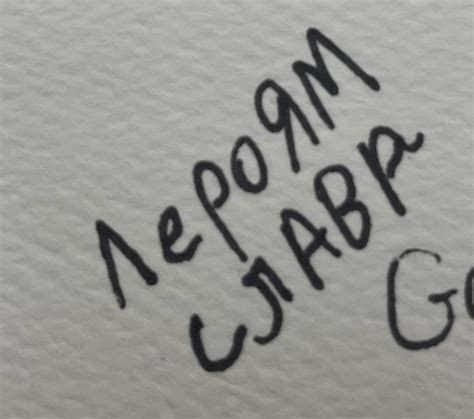 лероям
слава
Go